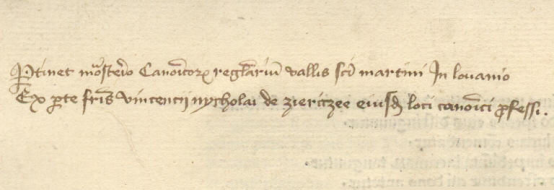 Ptinet mōst'io Canoīcorꝝ reglariū vallis sci martini In louanio
Ex pte fris vincencij nycholai de zierczee eiusdē loci canoīci pfessi.